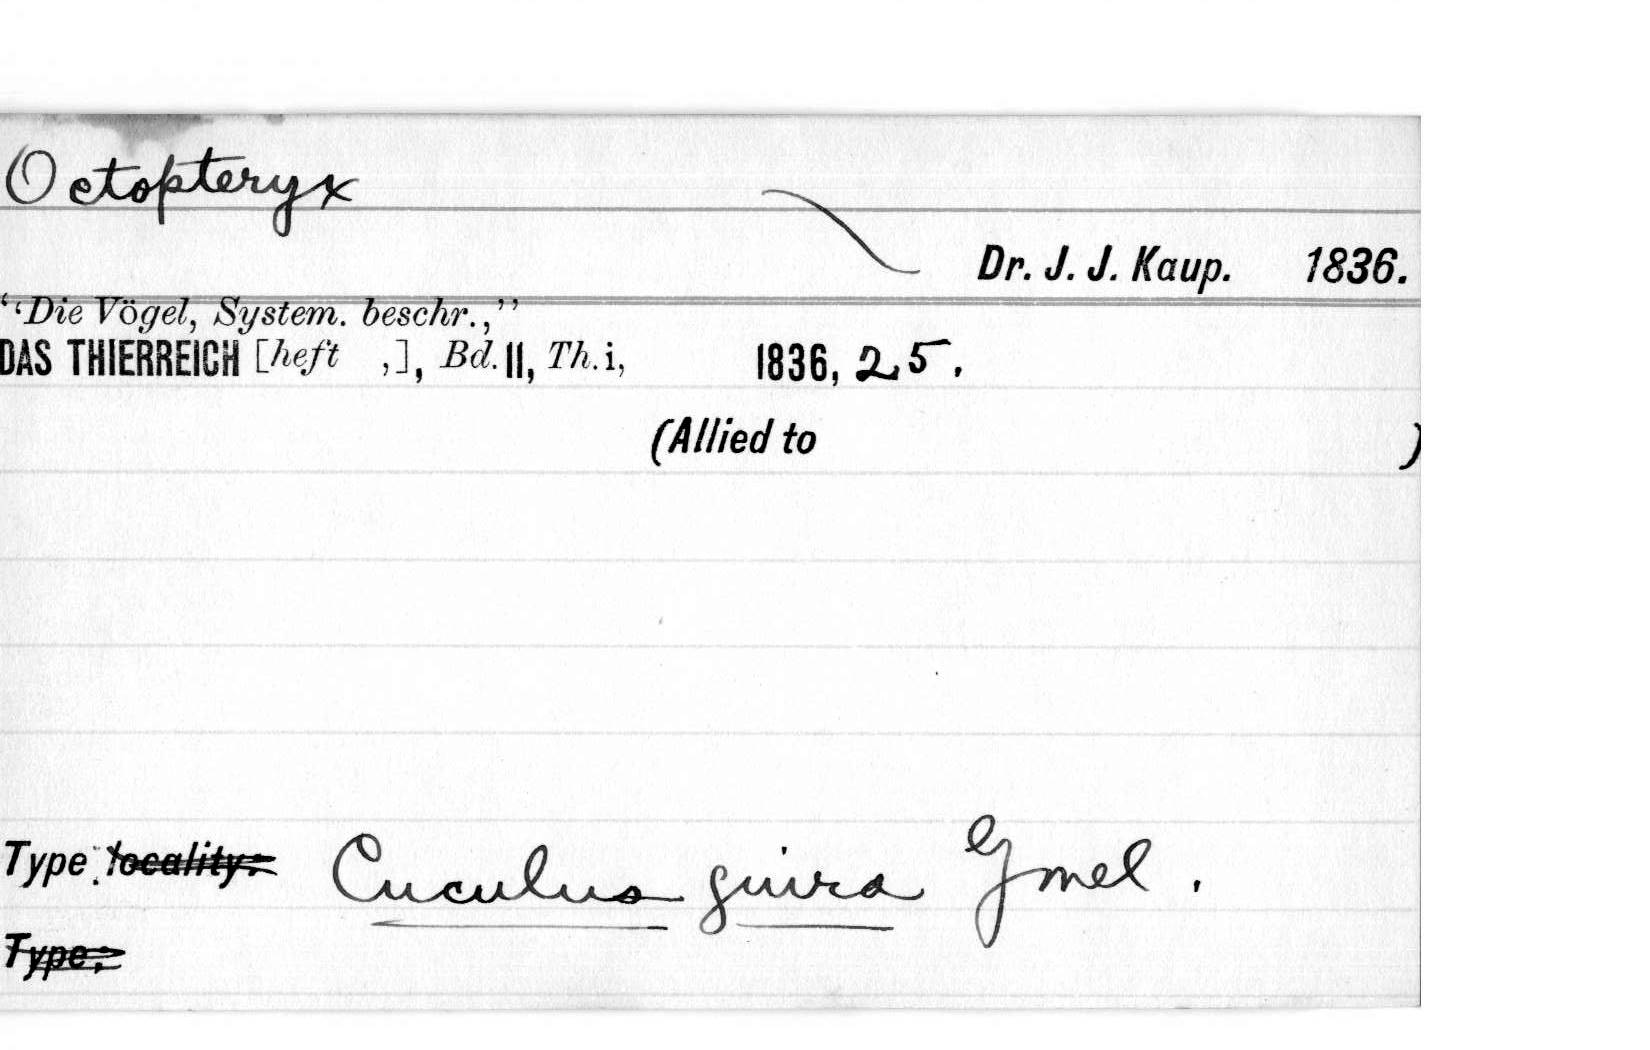 Octopteryx
Dr. J. J. Kaup. 1836.
‘‘Die Vögel, System. beschr.,’’
DAS THIERREICH [heft ,], Bd. II, Th. i, 1836, 25.
(Allied to )
Type: locality: Cuculus guira Gmel.
Type: